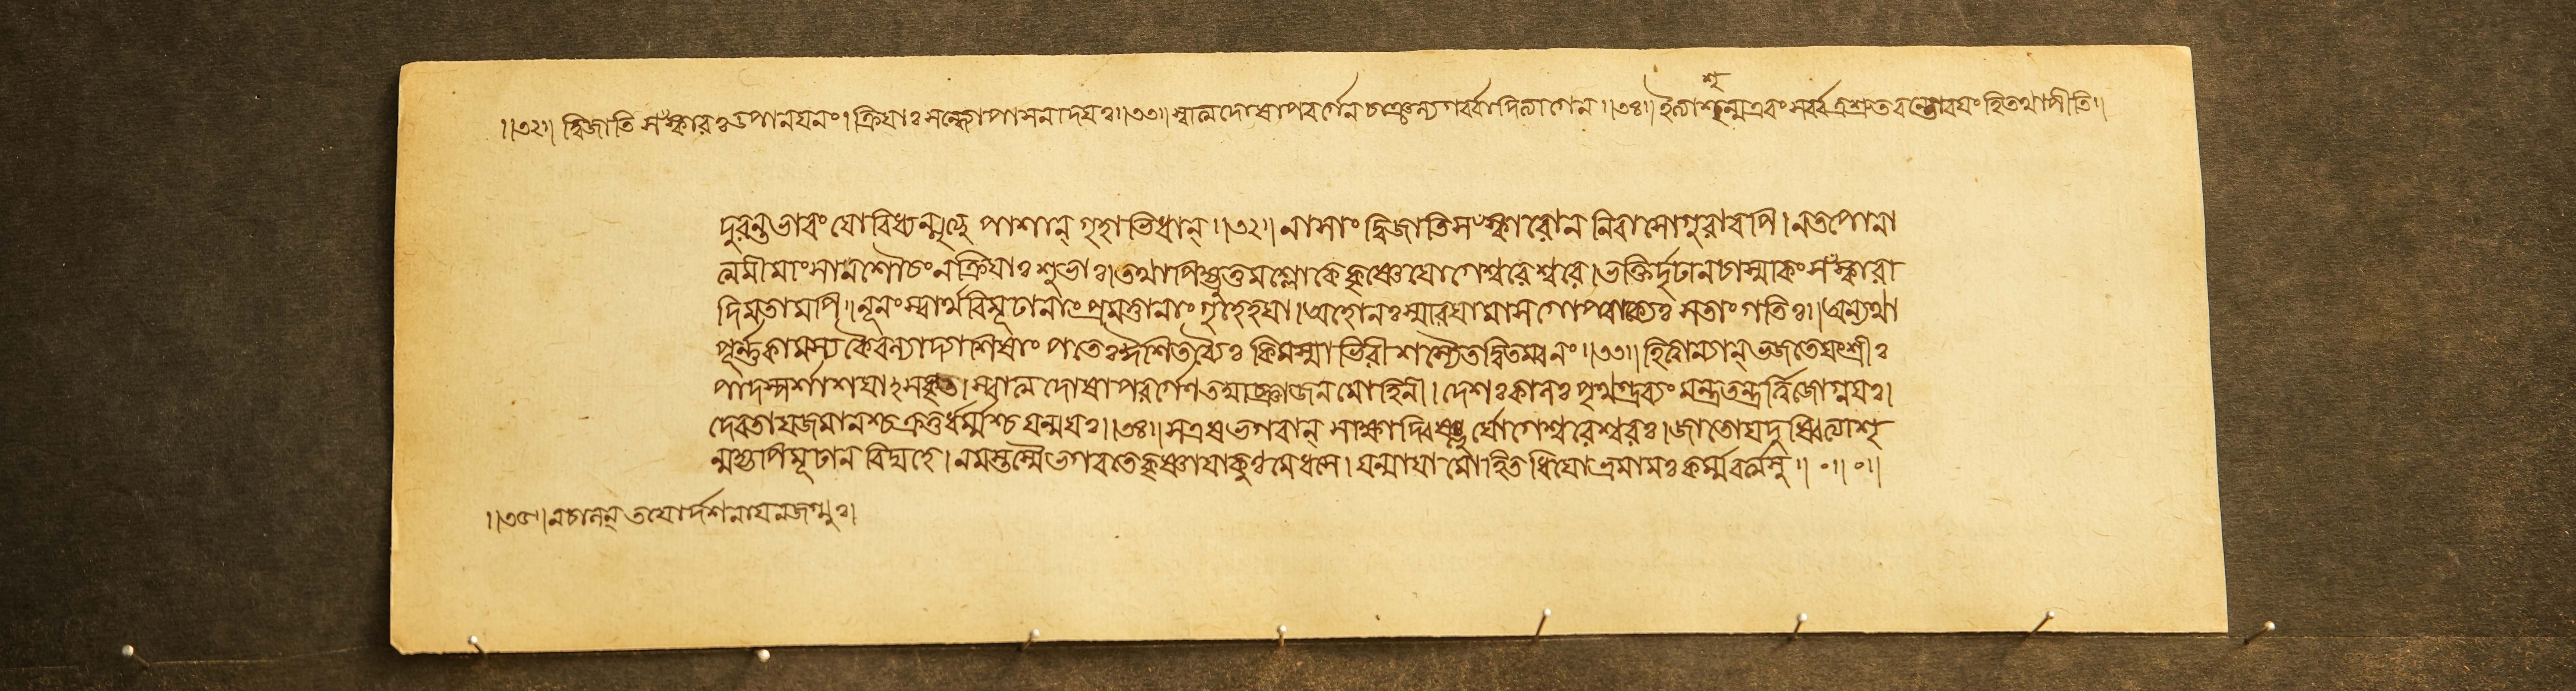 ।।৩২।। দ্বিজাতি সংস্কারঃ উপানয়নং। ক্রিয়াঃ সন্ধ্যোপাসনাদয়ঃ।।৩৩।। স্বাত্মদোষাপবর্গেন চাঞ্চল্যগর্ব্বাদিত্যাগেন ।।৩৪।। ইত্যাশৃন্মএবং সর্ব্বত্রশ্রুতবন্তোবয়ং হি তথাপীতি।।
দুরন্তভাবং যোবিধ্যন্মৃত্যু পাশান্ গৃহাভিধান্ ।।৩২।। নাসাং দ্বিজাতিসংস্কারোন নিবাসোগুরাবপি। নতপোনা
ত্মমীমাংসানশৌচংনক্রিয়াঃ শুভাঃ। তথাপিহ্যুত্তমশ্লোকে কৃষ্ণেযোগেশ্বরেশ্বরে। ভক্তির্দৃঢানচাস্মাকং সংস্কারা
দিমতামপি।। নূনংস্বার্থবিমূঢানাং প্রমত্তানাং গৃহেহয়া। অহোনঃস্মারয়ামাস গোপবাক্যৈঃ সতাং গতিঃ।। অন্যথা
পূর্ন্নকামস্য কৈবল্যাদ্যাশিষাং পতেঃঈশিতব্যৈঃ কিমস্মাভিরীশস্যৈতদ্বিতম্বনং ।।৩৩।। হিত্বান্যান্ ভজতেযংশ্রীঃ
পাদস্পর্শাশয়াঽসকৃৎ। স্বাত্ম দোষাপবর্গেণ তদ্যাচ্ঞাজনমোহিনী। দেশঃকালঃ পৃথগ্দ্রব্যং মন্ত্রতন্ত্রর্ত্বিজোগ্নয়ঃ।
দেবতাযজমানশ্চক্রতুর্ধর্ম্মশ্চ যন্ময়ঃ। ।৩৪।। সএষ ভগবান্ সাক্ষাদ্বিষ্ণু র্যোগেশ্বরেশ্বরঃ। জাতোযদুষ্বিত্যাশৃ
ন্মহ্যপিমূঢান বিদ্মহে। নমস্তস্মৈভগবতেকৃষ্ণায়াকুণ্ঠমেধসে। যন্মায়া মোহিতধিয়োভ্রমামঃ কর্ম্মবর্ত্মসু ।। ০।। ০।।
।।৩৫।। নচালন্ তয়োর্দশনায়নজগ্মুঃ।